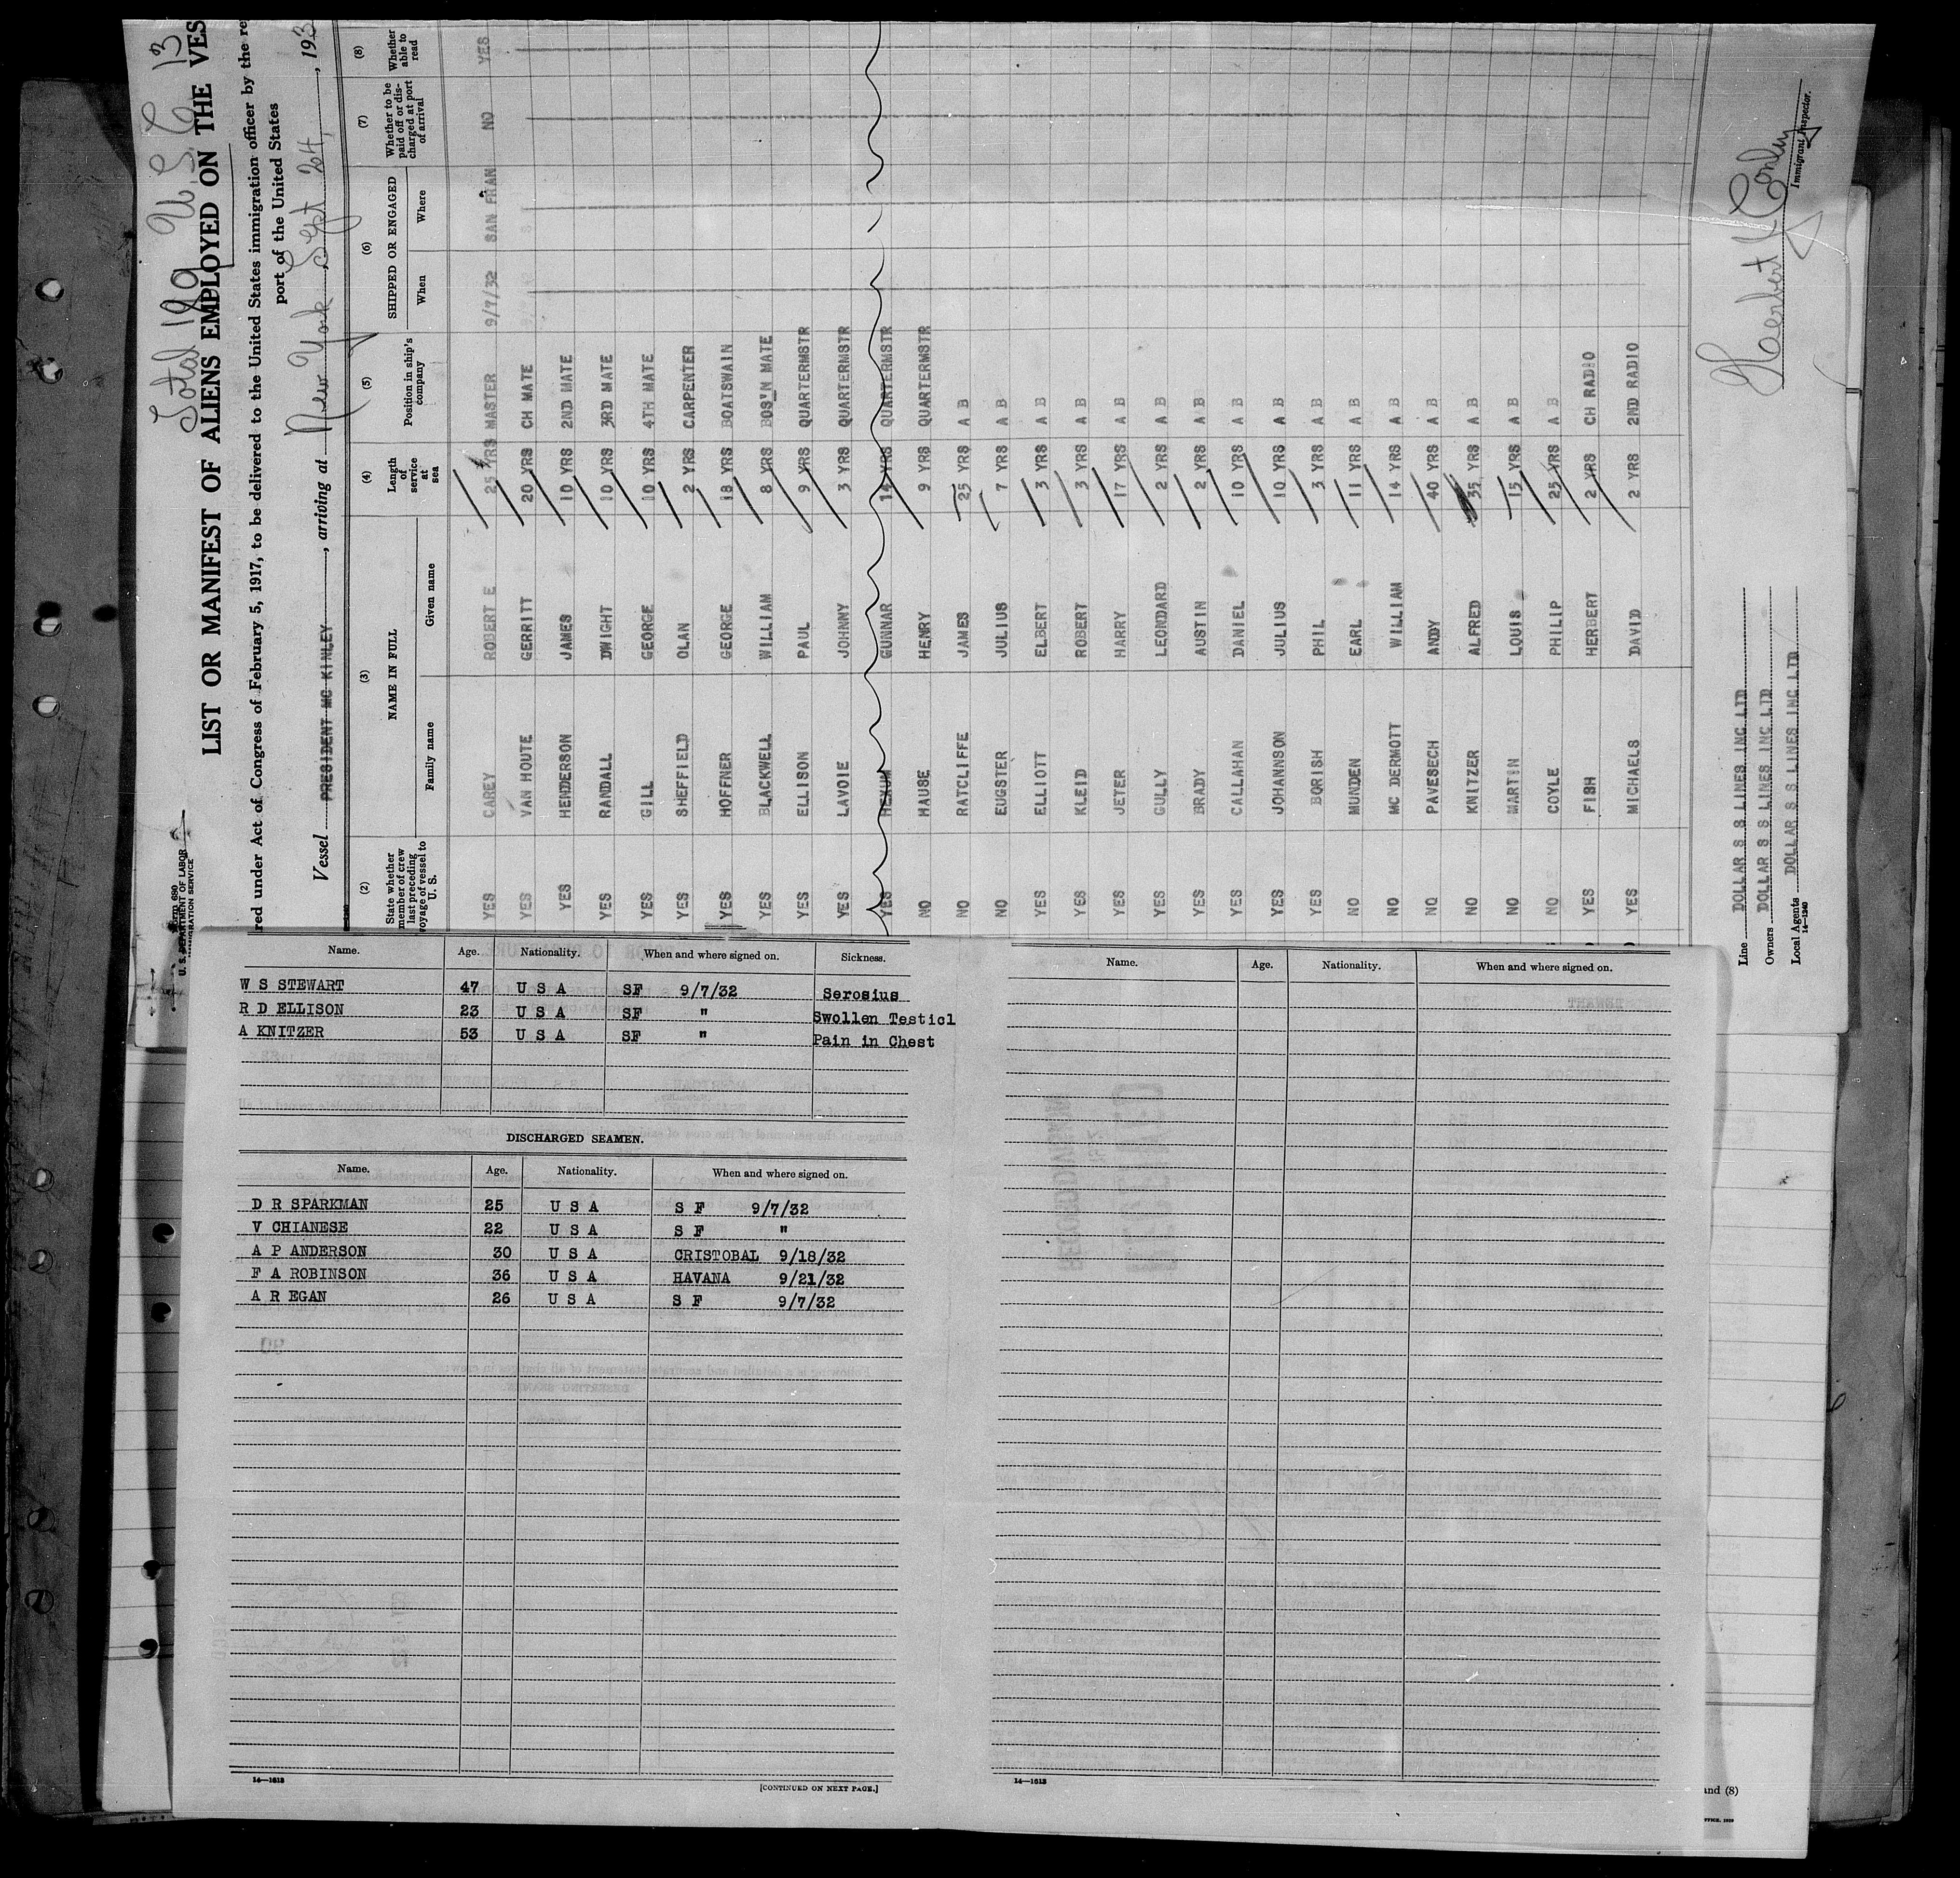 Total 189 U.S.C 13
Form 680
U. S. DEPARTMENT OF LABOR
IMMIGRATION SERVICE
LIST OR MANIFEST OF ALIENS EMPLOYED ON THE VES
red under Act of Congress of February 5, 1917, to be delivered to the United States immigration officer by the re
port of the United States
Vessel PRESIDENT MC KINLEY, arriving at New York Sept 24, 193
(2) (3) (4) (5) (6) (7) (8)
State whether member of crew last preceding voyage of vessel to U. S. NAME IN FULL Family name Given name Length of service at sea Position in ship's company SHIPPED OR ENGAGED When Where Whether to be paid off or discharged at port of arrival Whether able to read
YES CAREY ROBERT E 25 YRS MASTER 9/7/32 SAN FRAN NO YES
YES VAN HOUTE GERRITT 20 YRS CH MATE
YES HENDERSON JAMES 10 YRS 2ND MATE
YES RANDALL DWIGHT 10 YRS 3RD MATE
YES GILL GEORGE 10 YRS 4TH MATE
YES SHEFFIELD OLAN 2 YRS CARPENTER
YES HOFFNER GEORGE 18 YRS BOATSWAIN
YES BLACKWELL WILLIAM 8 YRS BOS'N MATE
YES ELLISON PAUL 9 YRS QUARTERMSTR
YES LAVOIE JOHNNY 3 YRS QUARTERMSTR
YES HEXUM GUNNAR 14 YRS QUARTERMSTR
NO HAUSE HENRY 9 YRS QUARTERMSTR
NO RATCLIFFE JAMES 25 YRS A B
NO EUGSTER JULIUS 7 YRS A B
YES ELLIOTT ELBERT 3 YRS A B
YES KLEID ROBERT 3 YRS A B
YES JETER HARRY 17 YRS A B
YES GULLY LEONDARD 2 YRS A B
YES BRADY AUSTIN 2 YRS A B
YES CALLAHAN DANIEL 10 YRS A B
YES JOHANNSON JULIUS 10 YRS A B
YES BORISH PHIL 3 YRS A B
NO MUNDEN EARL 11 YRS A B
NO MC DERMOTT WILLIAM 14 YRS A B
NO PAVESECH ANDY 40 YRS A B
NO KNITZER ALFRED 35 YRS A B
NO MARTIN LOUIS 15 YRS A B
NO COYLE PHILIP 25 YRS A B
YES FISH HERBERT 2 YRS CH RADIO
YES MICHAELS DAVID 2 YRS 2ND RADIO
Line DOLLAR S S LINES INC LTD
Owners DOLLAR S S LINES INC LTD
Local Agents DOLLAR S S LINES INC LTD
14—1240
Herbert Conley
Immigrant Inspector.
Name. Age. Nationality. When and where signed on. Sickness.
W S STEWART 47 U S A SF 9/7/32 Serosius
R D ELLISON 23 U S A SF " Swollen Testicl
A KNITZER 53 U S A SF " Pain in Chest
DISCHARGED SEAMEN.
Name. Age. Nationality. When and where signed on.
D R SPARKMAN 25 U S A S F 9/7/32
V CHIANESE 22 U S A S F "
A P ANDERSON 30 U S A CRISTOBAL 9/18/32
F A ROBINSON 36 U S A HAVANA 9/21/32
A R EGAN 26 U S A S F 9/7/32
14—1613
[CONTINUED ON NEXT PAGE.]
Name. Age. Nationality. When and where signed on.
14—1613
and (8)